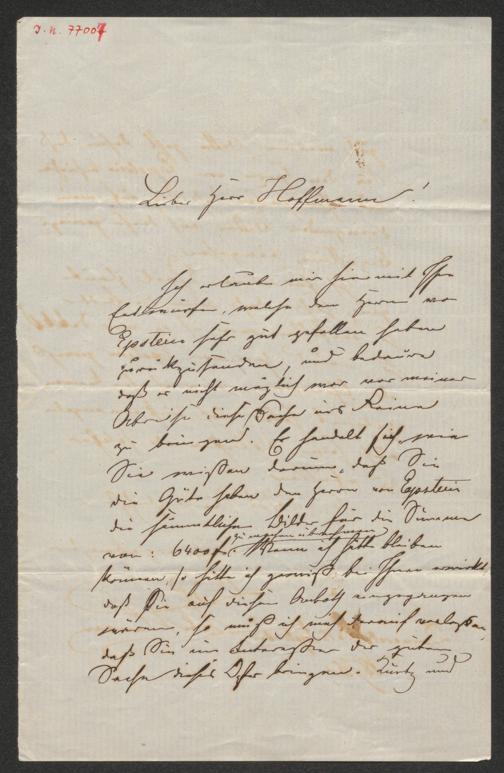 J. N. 77007
Lieber Herr Hoffmann!
Ich erlaube mir hiemit Ihre
Entwürfe, welche dem Herrn von
Epstein sehr gut gefallen haben
zurükzusenden, und bedaure
daß es nicht möglich war vor meiner
Abreise diese Sache ins Reine
zu bringen. Es handelt sich, wie
Sie wißen darum, daß Sie
die Güte haben dem Herrn von Epstein
die sämmtlichen Bilder für die Summe
von: 6400 f. zu machen übernehmen
Wenn ich hätte bleiben
können, so hätte ich gewiß bei Ihnen erwirkt
daß Sie auf diesen Anboth eingegangen
wären, so muß ich mich darauf verlaßen,
daß Sie im Interesse der guten
Sache dieses Opfer bringen. Kurtz und